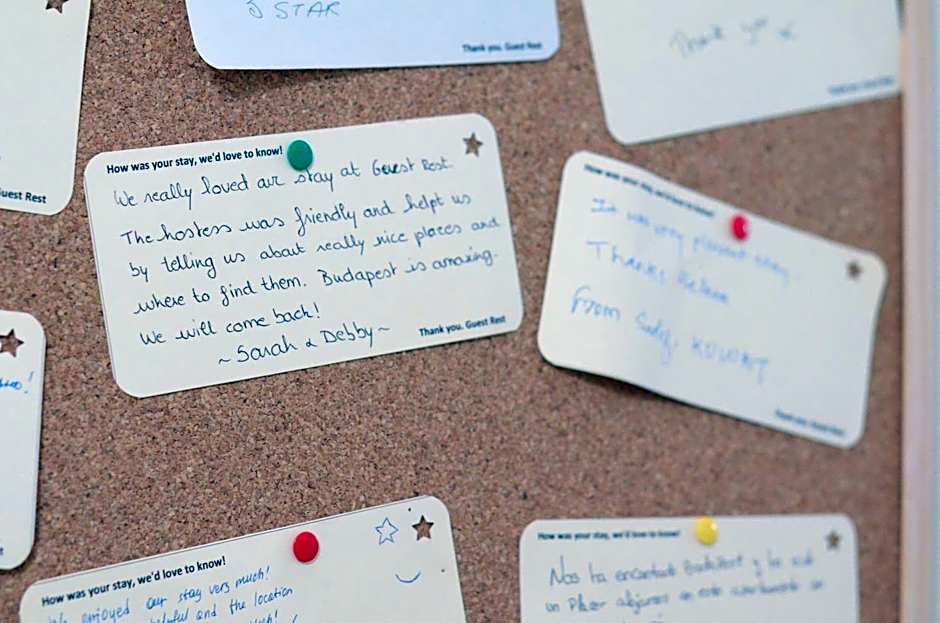 5 STAR
Thank you. Guest Rest
Thank you x
uest Rest
How was your stay, we'd love to know!
We really loved our stay at Guest Rest
The hostess was friendly and helpt us
by telling us about really nice places and
where to find them. Budapest is amazing.
We will come back!
~ Sarah & Debby ~
Thank you. Guest Rest
How was your stay, we'd love to know!
It was very pleasant stay
Thanks
From KUWAIT
Thank you. Guest Rest
How was your stay, we'd love to know!
We enjoyed our stay very much!
helpful and the location
much!
How was your stay, we'd love to know!
Nos ha encantado Budapest y ha sido
un placer alojarnos en este apartamento